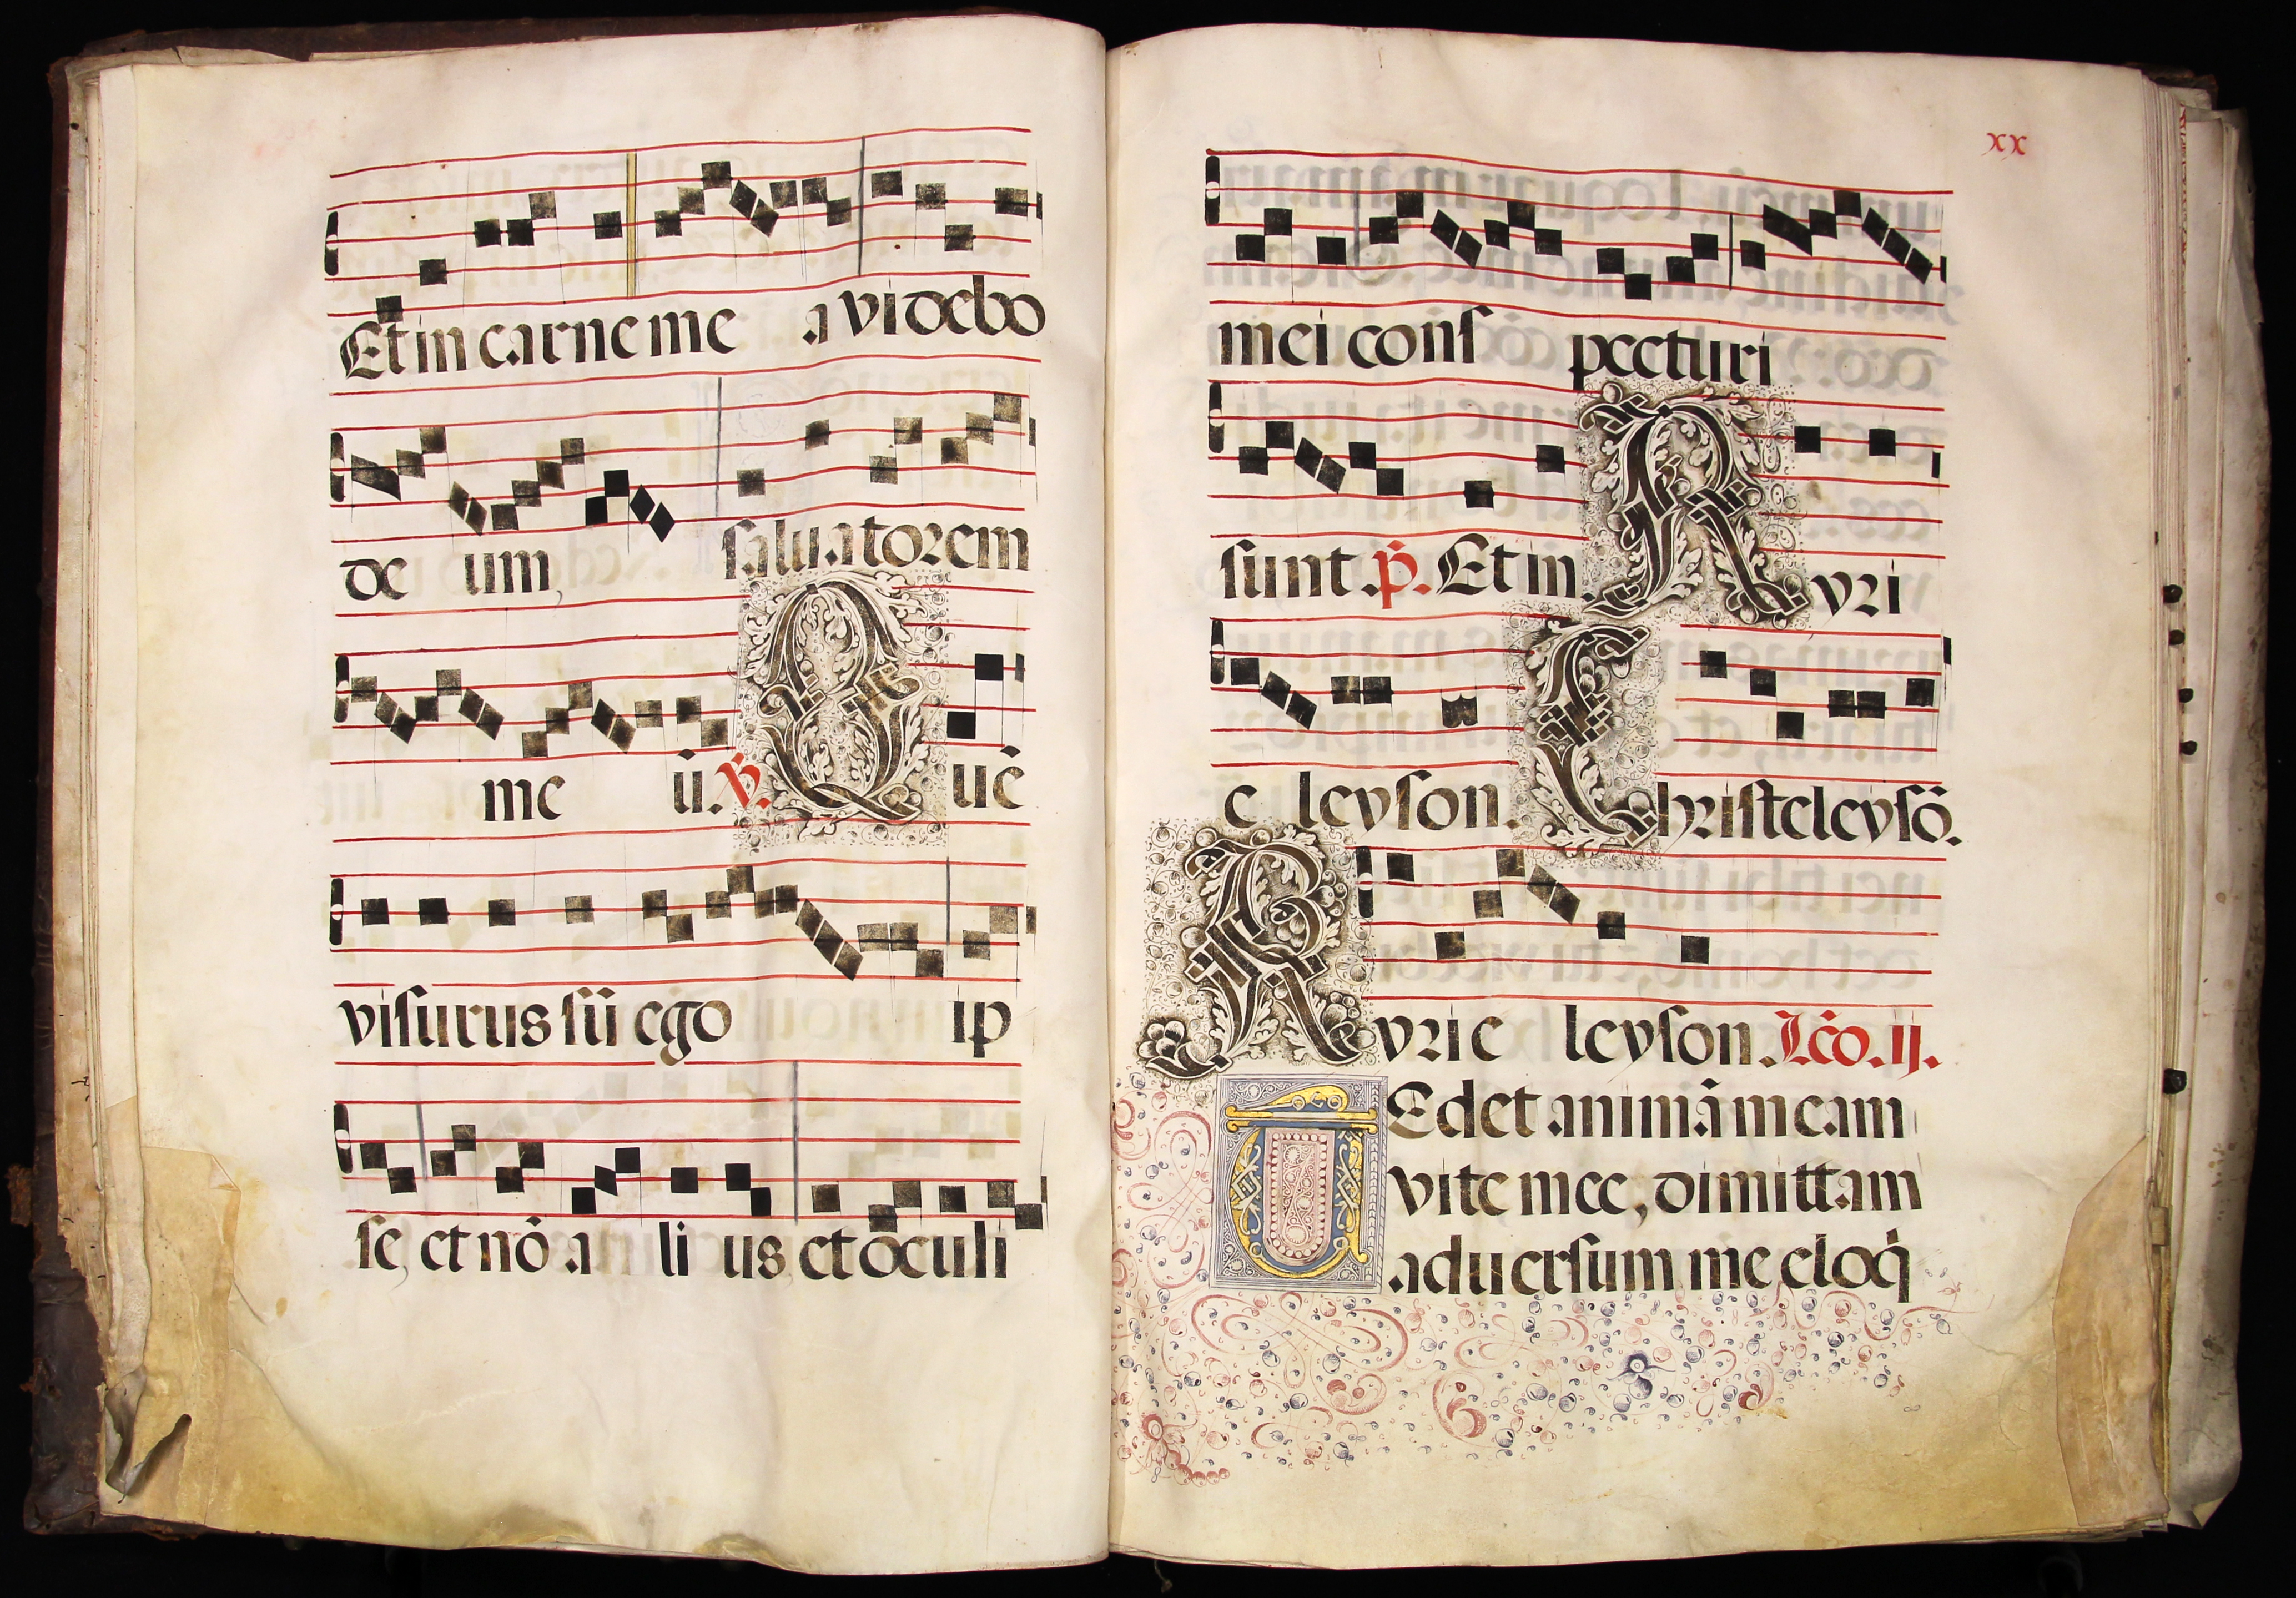 Et in carne me a videbo
de um, saluatorem
me ū. ℣. Quē
visurus sū ego ip
se, et nō a li us et oculi
xx
mei cons pecturi
sunt. p̄. Et in. Kyri
e leyson. Christeleysō.
Kyrie leyson. Lc̄o. ij.
TEdet animā meam
vite mee, dimittam
aduersum me eloq̇